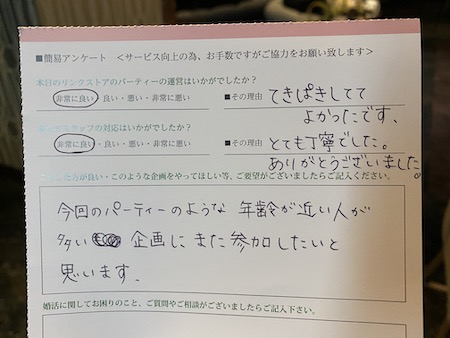 ■簡易アンケート <サービス向上の為、お手数ですがご協力をお願い致します>
本日のリンクストアのパーティーの運営はいかがでしたか?
非常に良い・良い・悪い・非常に悪い ■その理由 てきぱきしてて
よかったです、
スタッフの対応はいかがでしたか?
非常に良い・良い・悪い・非常に悪い ■その理由 とても丁寧でした。
ありがとうございました。
方が良い・このような企画をやってほしい等、ご要望がございましたらご記入ください。
今回のパーティーのような 年齢が近い人が
多い 企画にまた参加したいと
思います。
婚活に関してお困りのこと、ご質問やご相談がございましたらご記入下さい。